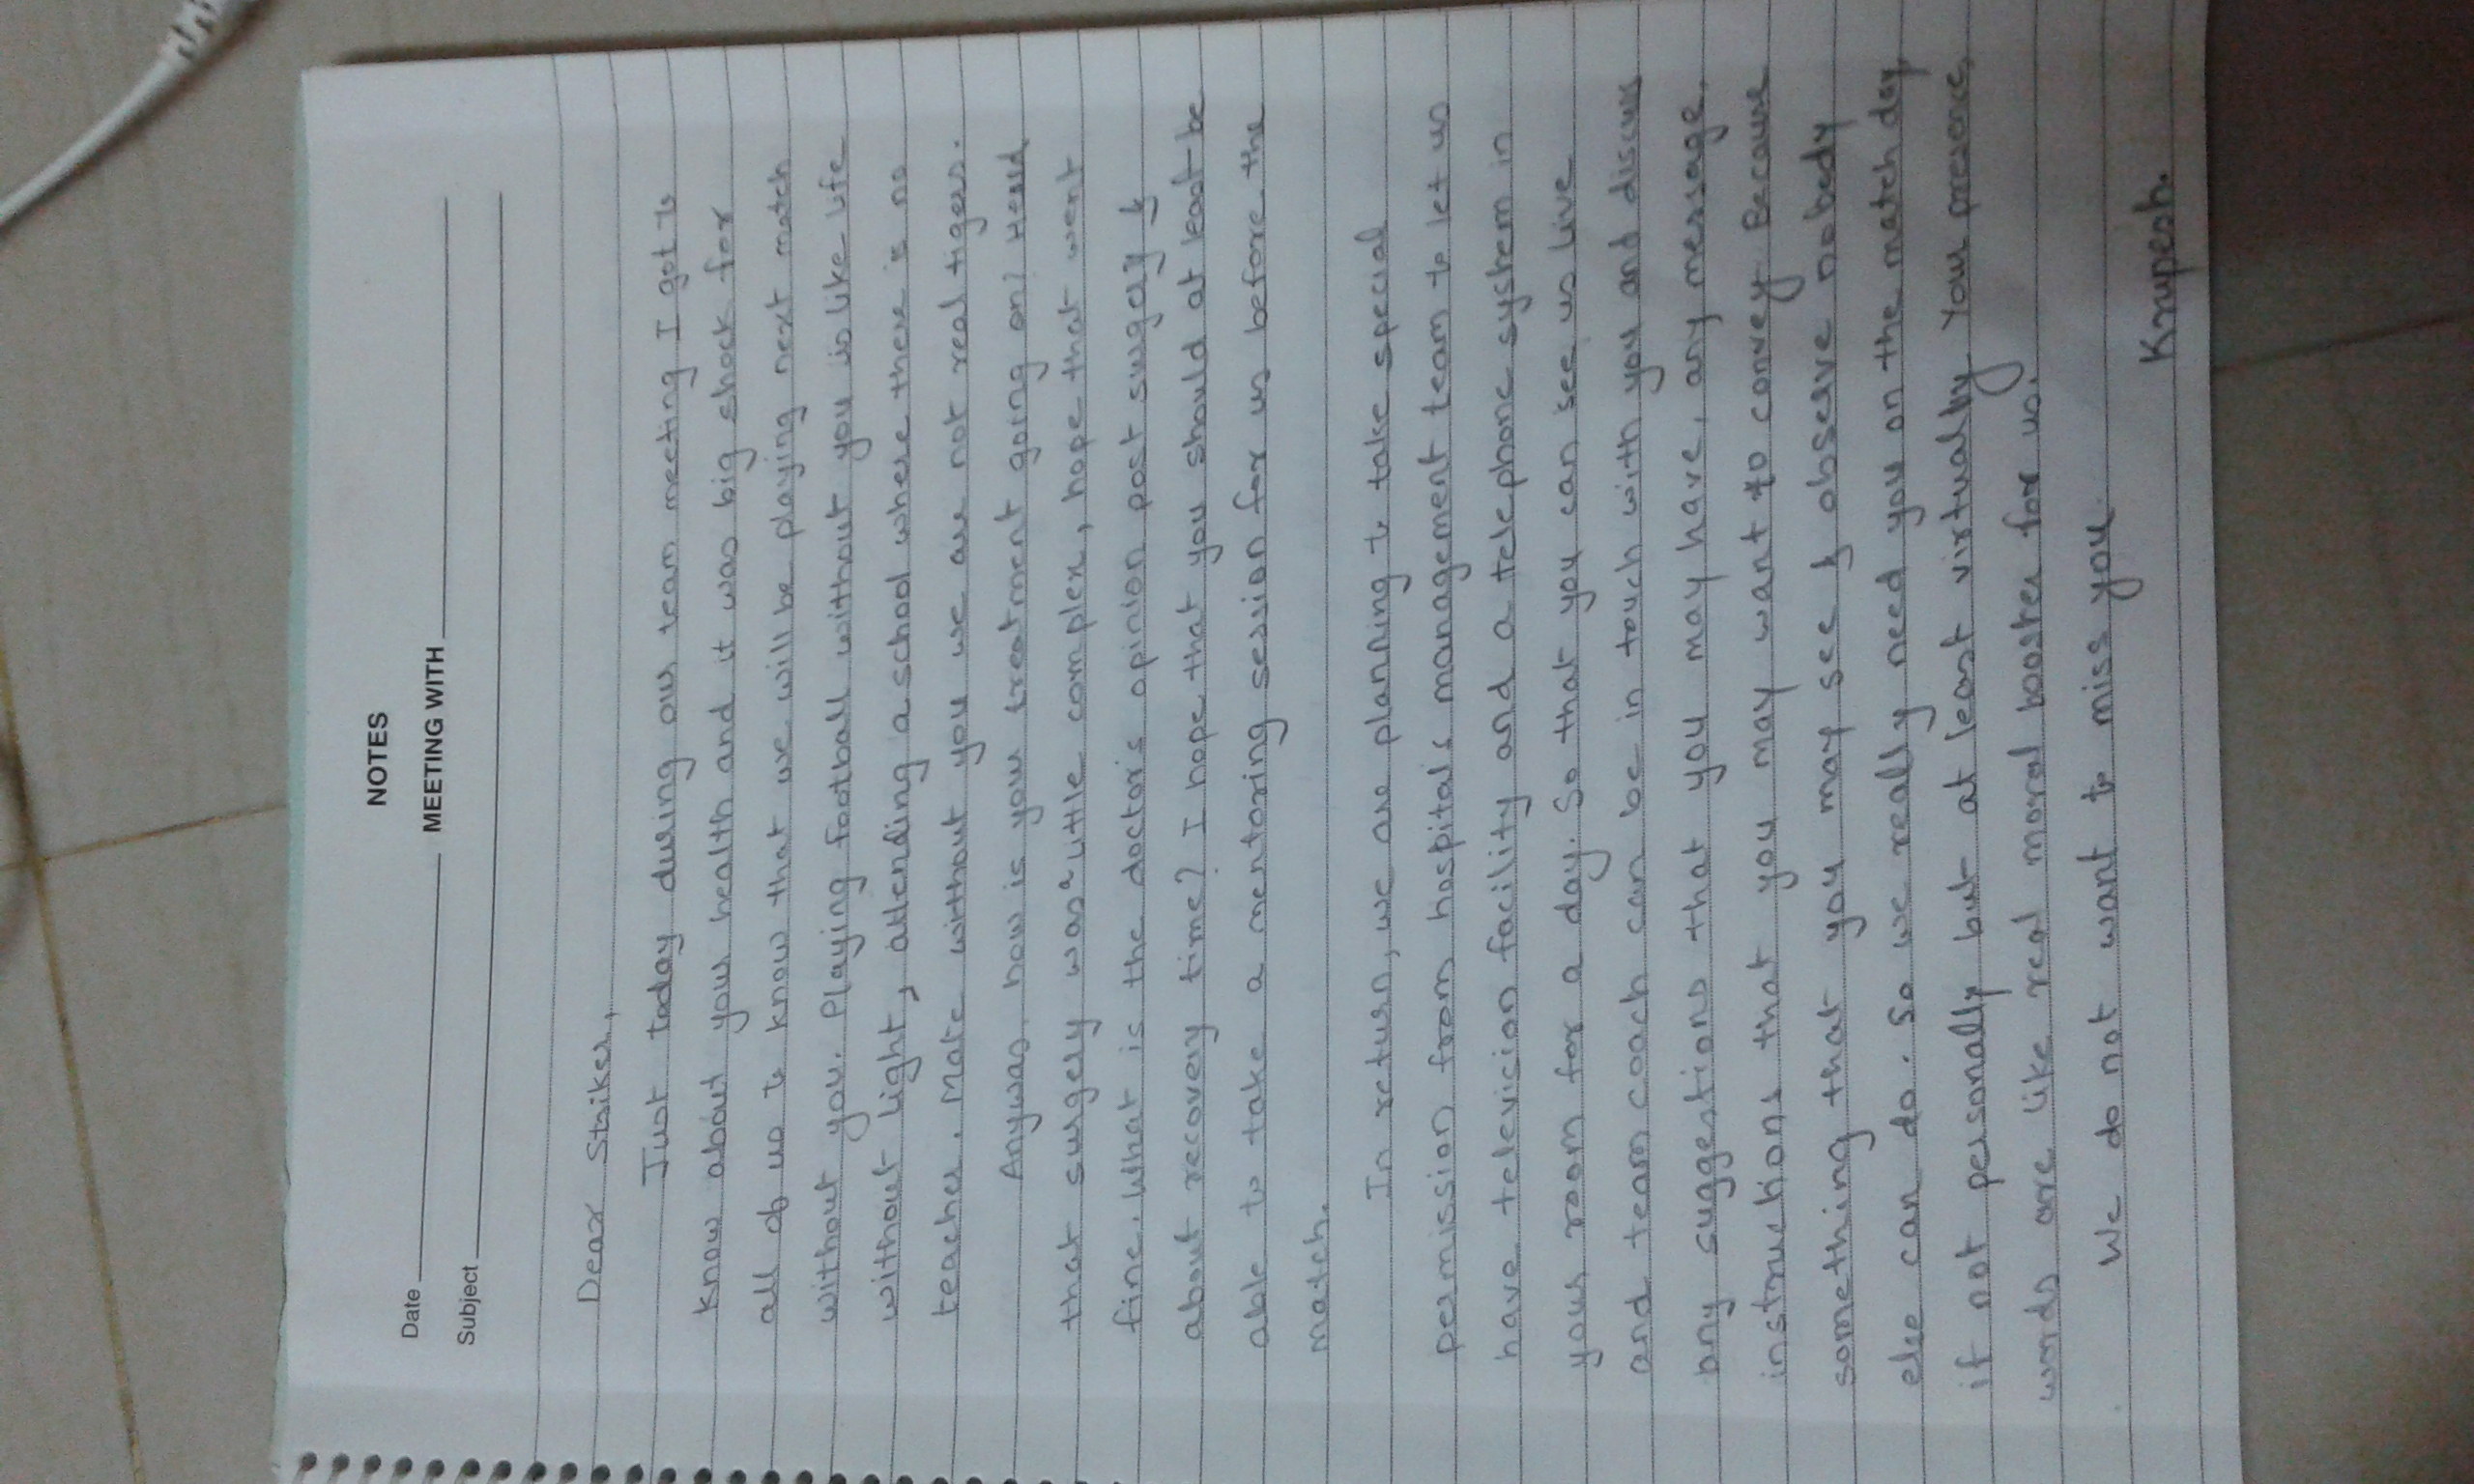 NOTES
Date MEETING WITH
Subject
Dear Striker,
Just today during our team meeting I got to
know about your health and it was big shock for
all of us to know that we will be playing next match
without you. Playing football without you is like life
without light, attending a school where there is no
teacher. Mate without you we are not real tigers.
Anyway, how is your treatment going on? Heard
that surgery was a little complex, hope that went
fine. What is the doctor's opinion post sugery &
about recovery time? I hope that you should at least be
able to take a mentoring session for us before the
match.
In return, we are planning to take special
permission from hospital's management team to let us
have television facility and a telephone system in
your room for a day. So that you can see us live
and team coach can be in touch with you and discuss
any suggestions that you may have, any message,
instructions that you may want to convey. Because
something that you may see & observe nobody
else can do. So we really need you on the match day,
if not personally but at least virtually. Your presence,
words are like real moral booster for us.
We do not want to miss you.
Krupesh.